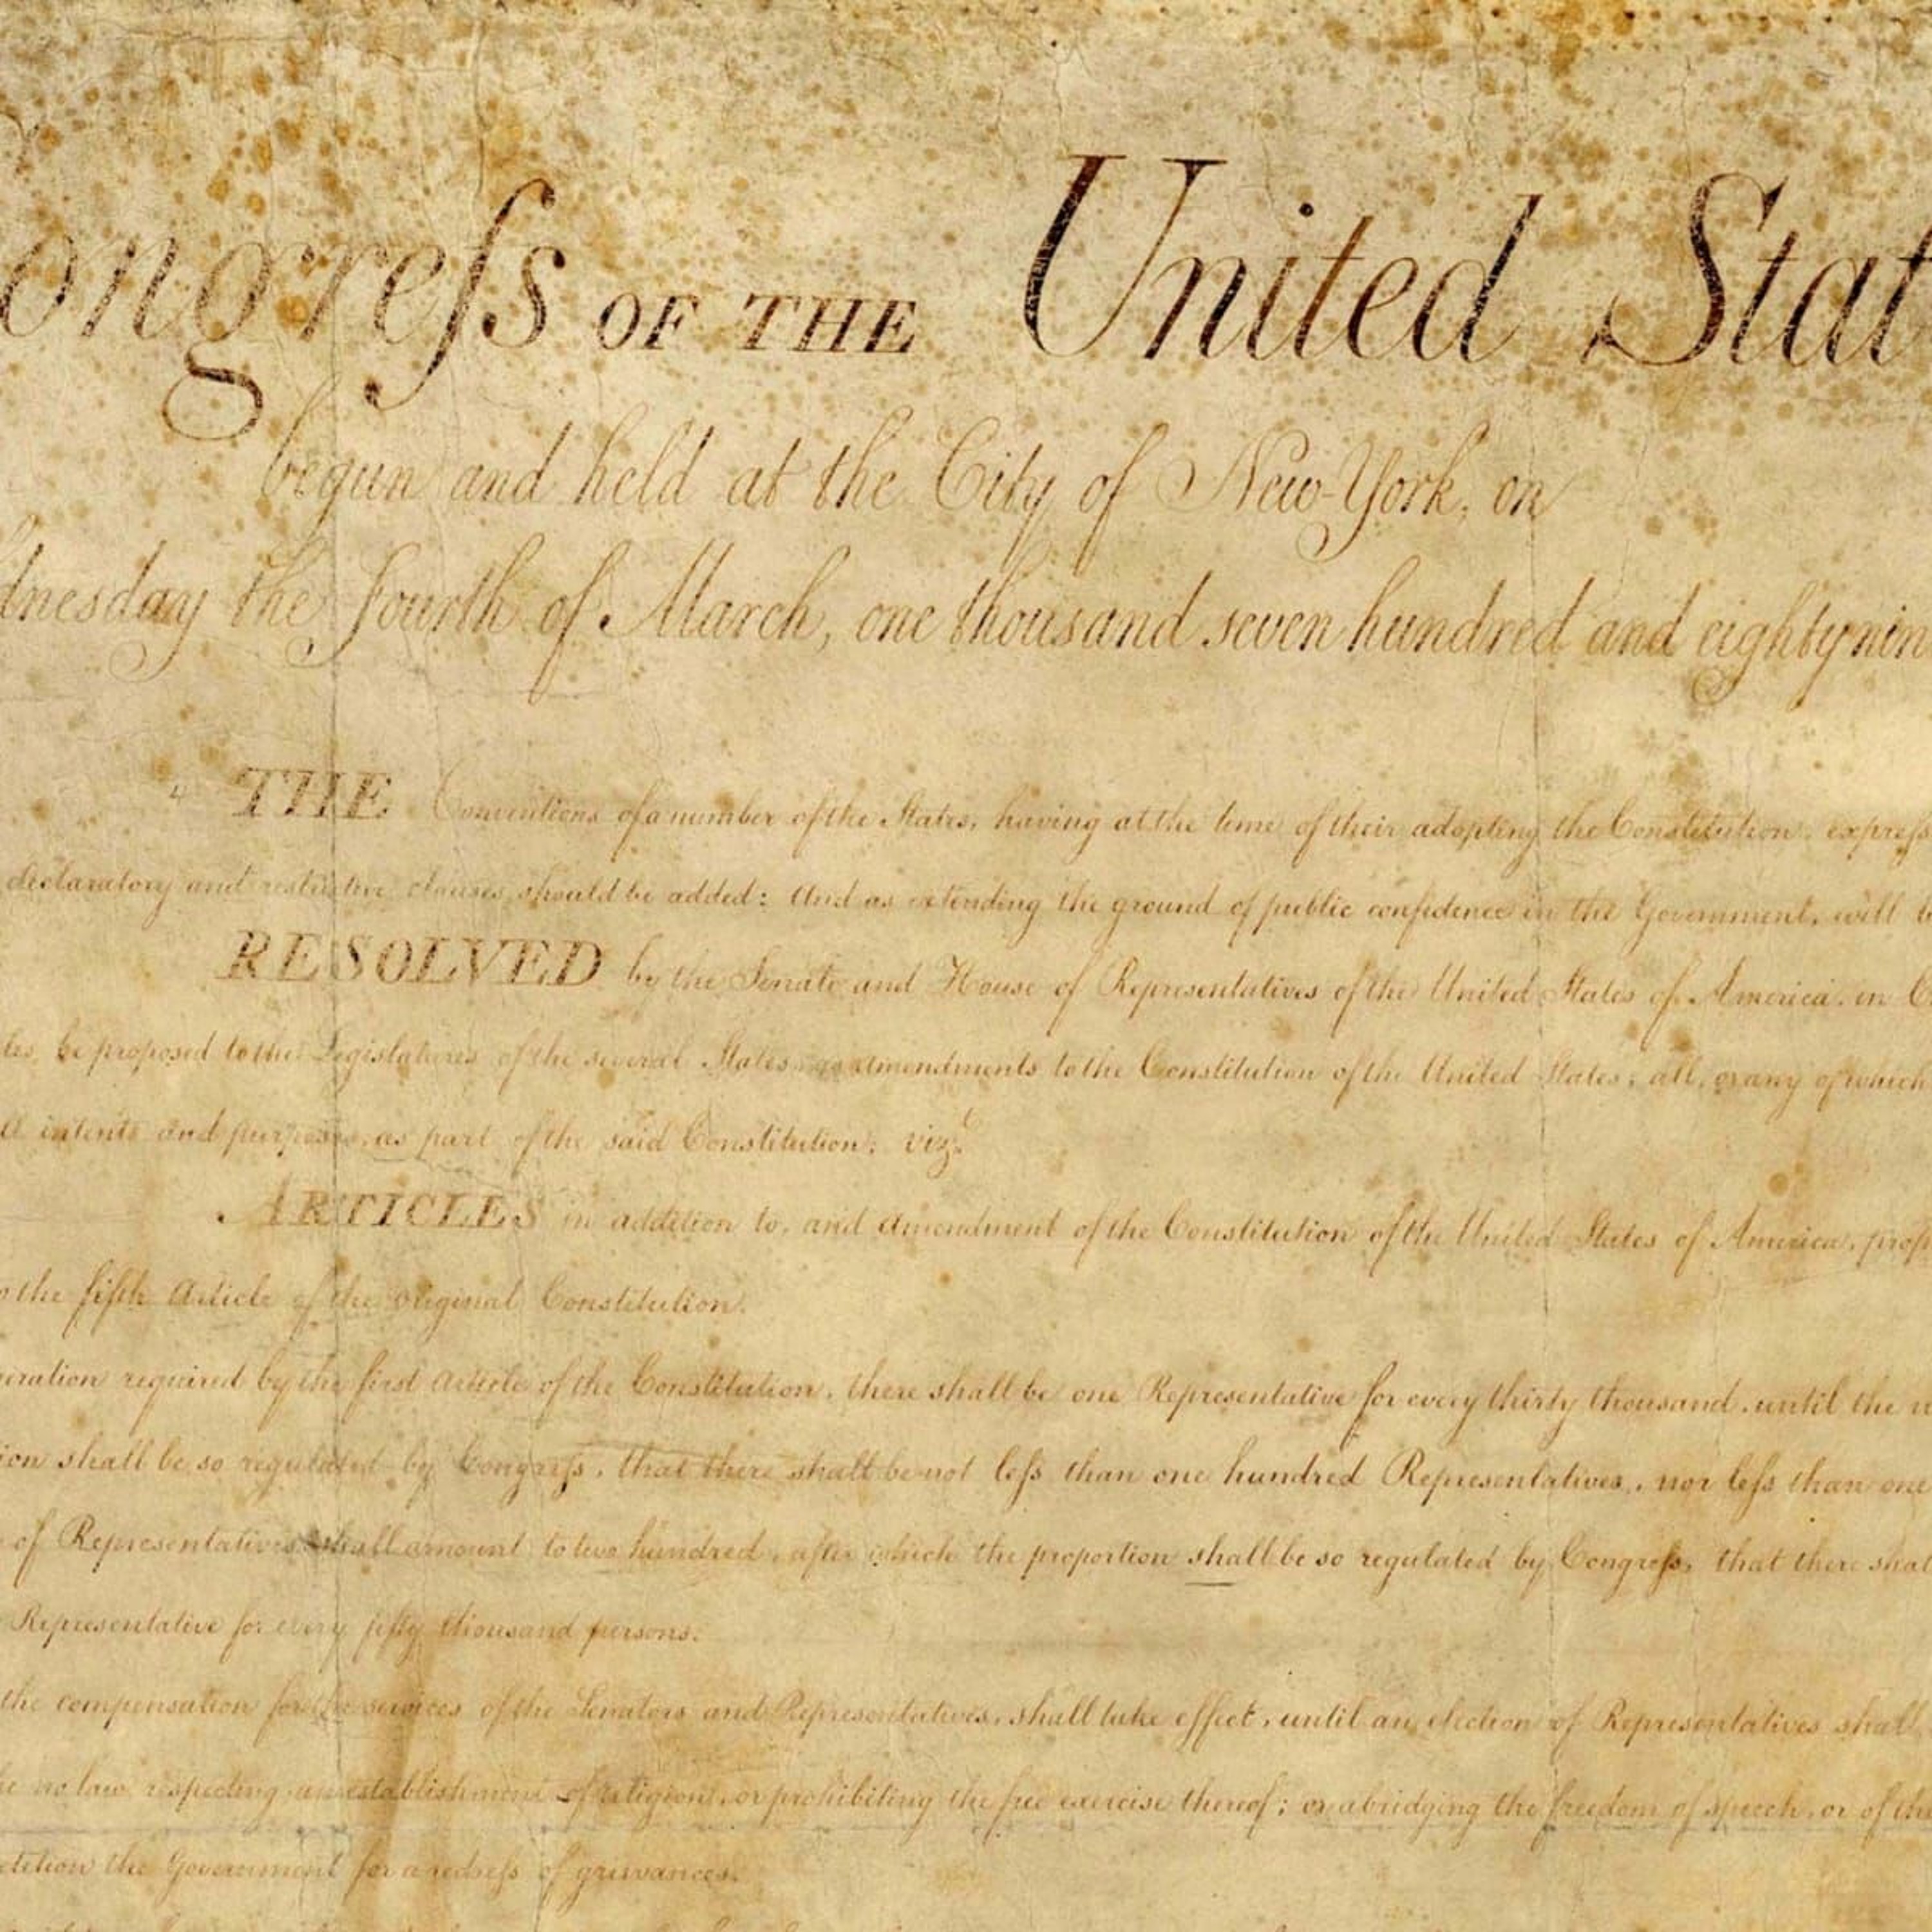 ongreſs OF THE United Stat
begun and held at the City of New-York, on
dnesday the fourth of March, one thousand seven hundred and eighty nin
THE Conventions of a number of the States, having at the time of their adopting the Constitution, expreſs
declaratory and restrictive clauses should be added: And as extending the ground of public confidence in the Government, will
RESOLVED by the Senate and House of Representatives of the United States of America, in C
les, be proposed to the Legislatures of the several States, as amendments to the Constitution of the United States, all, or any of which
ll intents and purposes, as part of the said Constitution; vizt
ARTICLES in addition to, and Amendment of the Constitution of the United States of America, prop
o the fifth Article of the original Constitution.
eration required by the first Article of the Constitution, there shall be one Representative for every thirty thousand, until the n
ion shall be so regulated by Congreſs, that there shall be not leſs than one hundred Representatives, nor leſs than one
of Representatives shall amount to two hundred, after which the proportion shall be so regulated by Congreſs, that there shal
Representative for every fifty thousand persons.
the compensation for the services of the Senators and Representatives, shall take effect, until an election of Representatives shall
ke no law respecting an establishment of religion, or prohibiting the free exercise thereof; or abridging the freedom of speech, or of th
etition the Government for a redreſs of grievances.